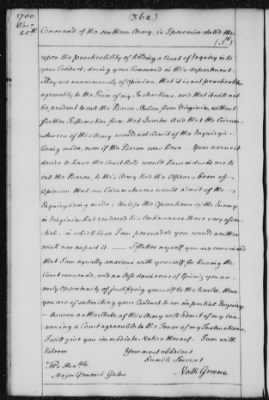 1780
Novr
20th
(362.)
Command of the southern Army, is Specimen dated the
upon the practicability of holding a Court of Enquiry into
your Conduct, during your Command in this department.
They are unanimously of Opinion, that it is not practicable
agreeably to the Tenor of my Instructions, and that it will not
be prudent to call the Baron Stuben from Virginia, without
further Information from that Quarter And that the Circum-
stances of this Army would not admit of the Inquiry's
being made, even if the Baron was here. Your earnest
desire to have the Court Sit would have induced me to
call the Baron, to this Army had the Officers been of
Opinion that our Circumstances would admit of the
Inquiry being made; Unless the Operations of the Enemy
in Virginia had rendered his Continuance there very essen-
tial, in which Case I am persuaded you would neither
wish nor expect it. I flatter myself you are convinced
that I am equally anxious with yourself for having the
Court convened, and on first Opening you an
early Opportunity of justifying yourself to the World, than
you are of submitting your Conduct to an impartial Enquiry
As soon as the State of this Army will admit of my con-
vening a Court agreeable to the Tenor of my Instructions,
I will give you immediate Notice thereof. I am with
Esteem Your most obedient
Humble Servant
The Honble
Major General Gates
Nath Greene